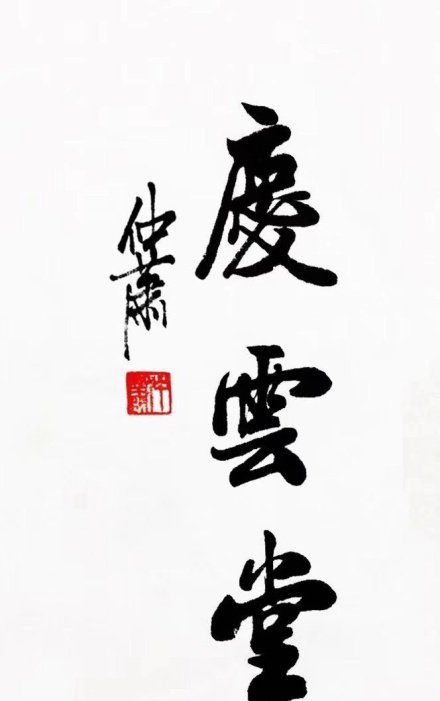 慶雲堂
仲蕭